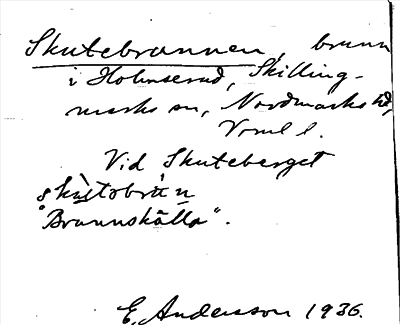 Skutebrunnen, brunn
i Holmserud, Skilling-
marks sn, Nordmarks hd,
Vrml l.
Vid Skuteberget
"Brunnskälla".
E. Andersson 1936.